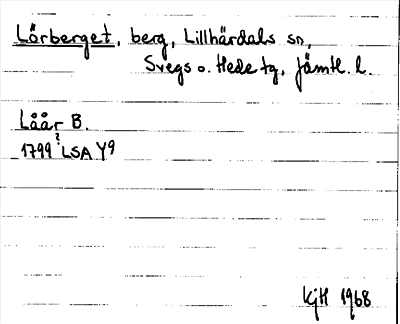 Lörberget, berg, Lillhärdals sn,
Svegs o. Hede tg, Jämtl. l.
Låår B.
1799 ? LSA Y9
KjH 1968